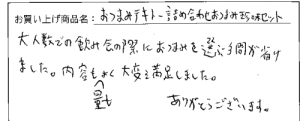 お買い上げ商品名：おつまみテキトー詰め合わせおつまみ5味セット
大人数での飲み会の際におつまみを選ぶ手間が省け
ました。内容も量もよく大変満足しました。
ありがとうございます。